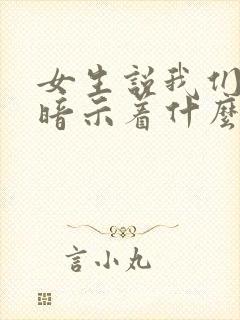 女生说我们
暗示着什麼
言小丸